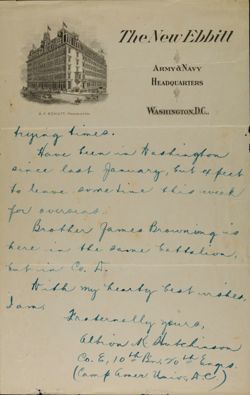 The New Ebbitt
Army & Navy
Headquarters
Washington, D.C.
trying times.
Have been in Washington
since last January, but expect
to leave sometime this week
for overseas.
Brother James Browning is
here in the same battalion,
but in Co. D.
With my hearty best wishes,
I am
Fraternally yours,
Albion K. Hutchinson
Co. E, 10th Bn. 20th Engs.
(Camp Amer. Univ., D.C.)